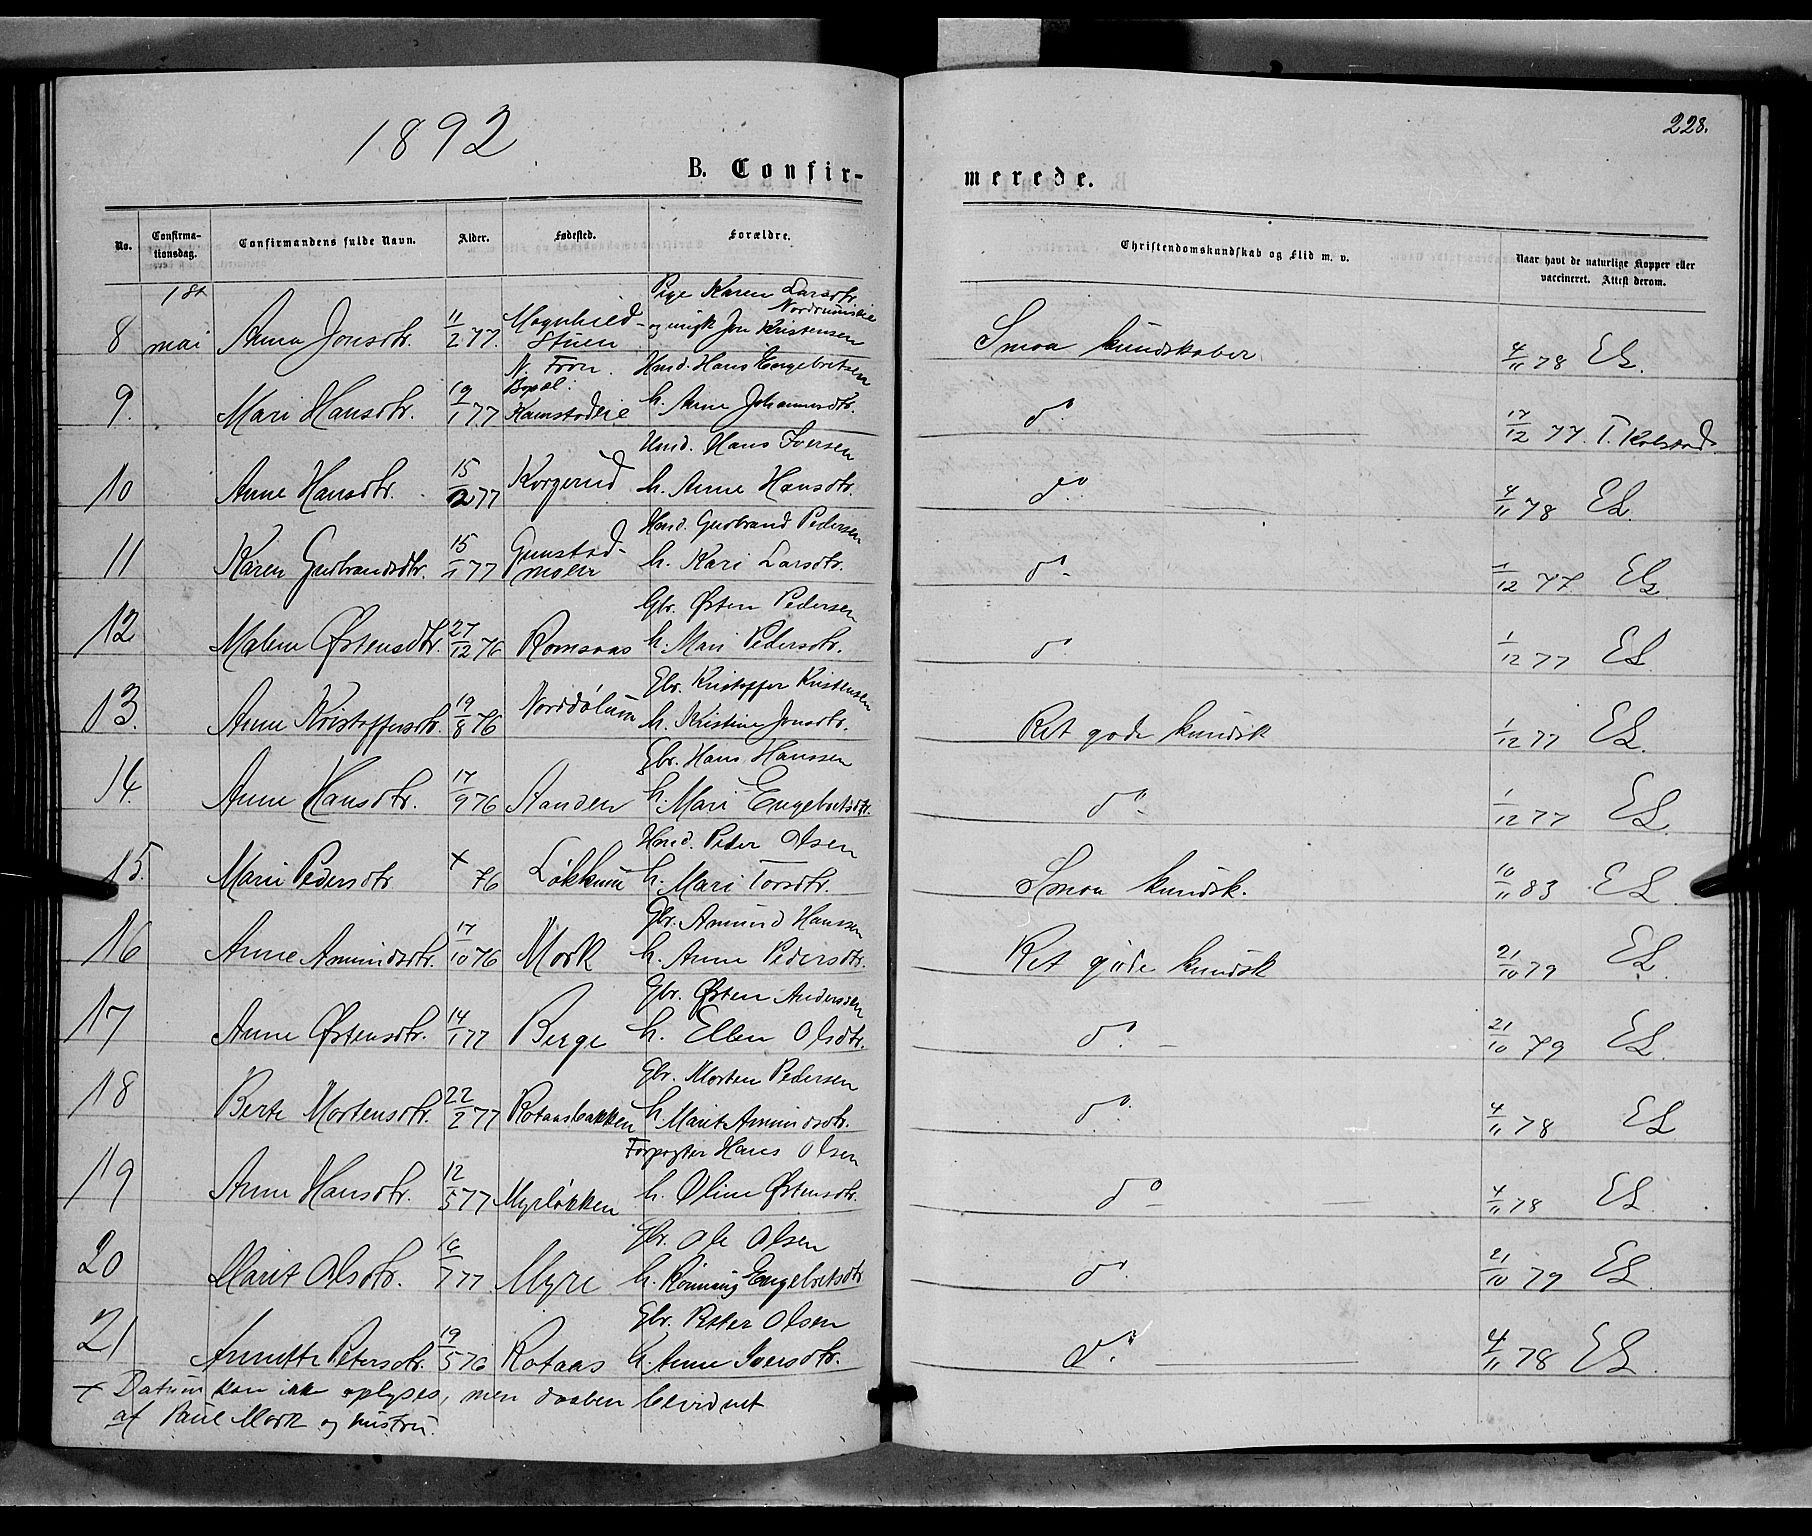 1892
228.
B. Confir-
merede.
No.
Confirma-
tionsdag.
Confirmandens fulde Navn.
Alder.
Fødested.
Forældre.
Christendomskundskab og Flid m. v.
Naar havt de naturlige Kopper eller
vaccineret. Attest derom.
18de
Pige Karen Larsdtr.
8 mai Anna Jonsdtr. 11/2 77. Magnhild-
stuen og ungk Jon Kristensen Smaa kundskaber 4/11 78 EL.
N. Fron. Hmd. Hans Engebretsen
9. Mari Hansdtr. 19/1 77 Kamstadeie h. Anne Johannesdtr. do 17/12 77. T. Kolstad
Hmd. Hans Iversen
10 Anne Hansdtr. 15/2 77 Korgerud h. Anne Hansdtr. do 4/11 78 EL.
Hmd. Gudbrand Pedersen
11 Karen Gudbrandsdtr. 15/1 77 Gunstad-
moen h. Kari Larsdtr. do 1/12 77 EL
Gbr. Østen Pedersen
12 Malene Østensdtr. 27/12 76 Romsaas h. Mari Pedersdtr. do 1/12 77 EL
Gbr. Kristoffer Kristensen
13. Anne Kristoffersdtr. 19/8 76 Norddølum h. Kristine Jonsdtr. Ret gode kundsk 1/12 77 EL.
Gbr. Hans Hanssen
14. Anne Hansdtr. 17/9 76 Aanden h. Mari Engebretsdtr. do 1/12 77 EL
Hmd. Peder Olsen
15. Mari Pedersdtr + 76 Løkkum h. Mari Torsdtr. Smaa kundsk. 10/11 83 EL
Gbr. Amund Hanssen
16 Anne Amundsdtr. 17/10 76 Mork h. Anne Pedersdtr. Ret gode kundsk 21/10 79 EL
Gbr. Østen Andersen
17 Anne Østensdtr. 14/1 77 Berge h. Ellen Olsdtr. do 21/10 79 EL.
Gbr. Morten Pedersen
18 Berte Mortensdtr. 22/2 77 Rotaasbakken h. Marit Amundsdtr. do 4/11 78 EL
Forpagter Hans Olsen
19 Anne Hansdtr. 12/5 77 Myrløkken h. Oline Østensdtr. do 4/11 78 EL.
Gbr. Ole Olsen
20 Marit Olsdtr. 16/1 77 Myre h. Rønnaug Engebretsdtr do 21/10 79 EL
Gbr. Petter Olsen
21 Annette Petersdtr. 19/5 76 Rotaas h. Anne Iversdtr. do 4/11 78 EL
+ Datum kan ikke oplyses, men daaben bevidnet
af Paul Mork og hustru.